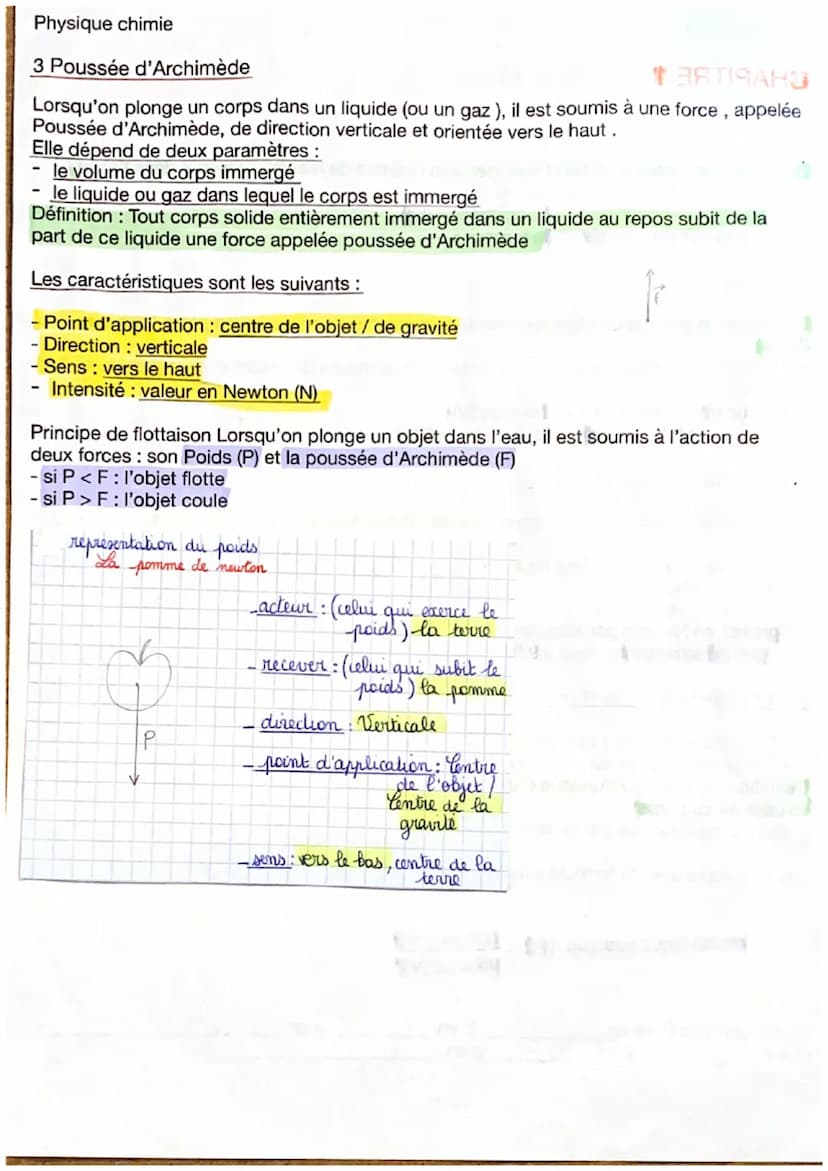 Physique chimie
3 Poussée d'Archimède
CHAPITRE 1
Lorsqu'on plonge un corps dans un liquide (ou un gaz ), il est soumis à une force , appelée
Poussée d'Archimède, de direction verticale et orientée vers le haut .
Elle dépend de deux paramètres :
- le volume du corps immergé
- le liquide ou gaz dans lequel le corps est immergé
Définition : Tout corps solide entièrement immergé dans un liquide au repos subit de la
part de ce liquide une force appelée poussée d'Archimède
Les caractéristiques sont les suivants :
F
- Point d'application : centre de l'objet / de gravité
- Direction : verticale
- Sens : vers le haut
- Intensité : valeur en Newton (N)
Principe de flottaison Lorsqu'on plonge un objet dans l'eau, il est soumis à l'action de
deux forces : son Poids (P) et la poussée d'Archimède (F)
- si P < F : l'objet flotte
- si P > F : l'objet coule
représentation du poids
La pomme de newton
- acteur : (celui qui exerce le
poids) la terre
- recever : (celui qui subit le
poids) la pomme
- direction : Verticale
P
- point d'application : Centre
de l'objet /
Centre de la
gravité
- sens : vers le bas, centre de la
terre